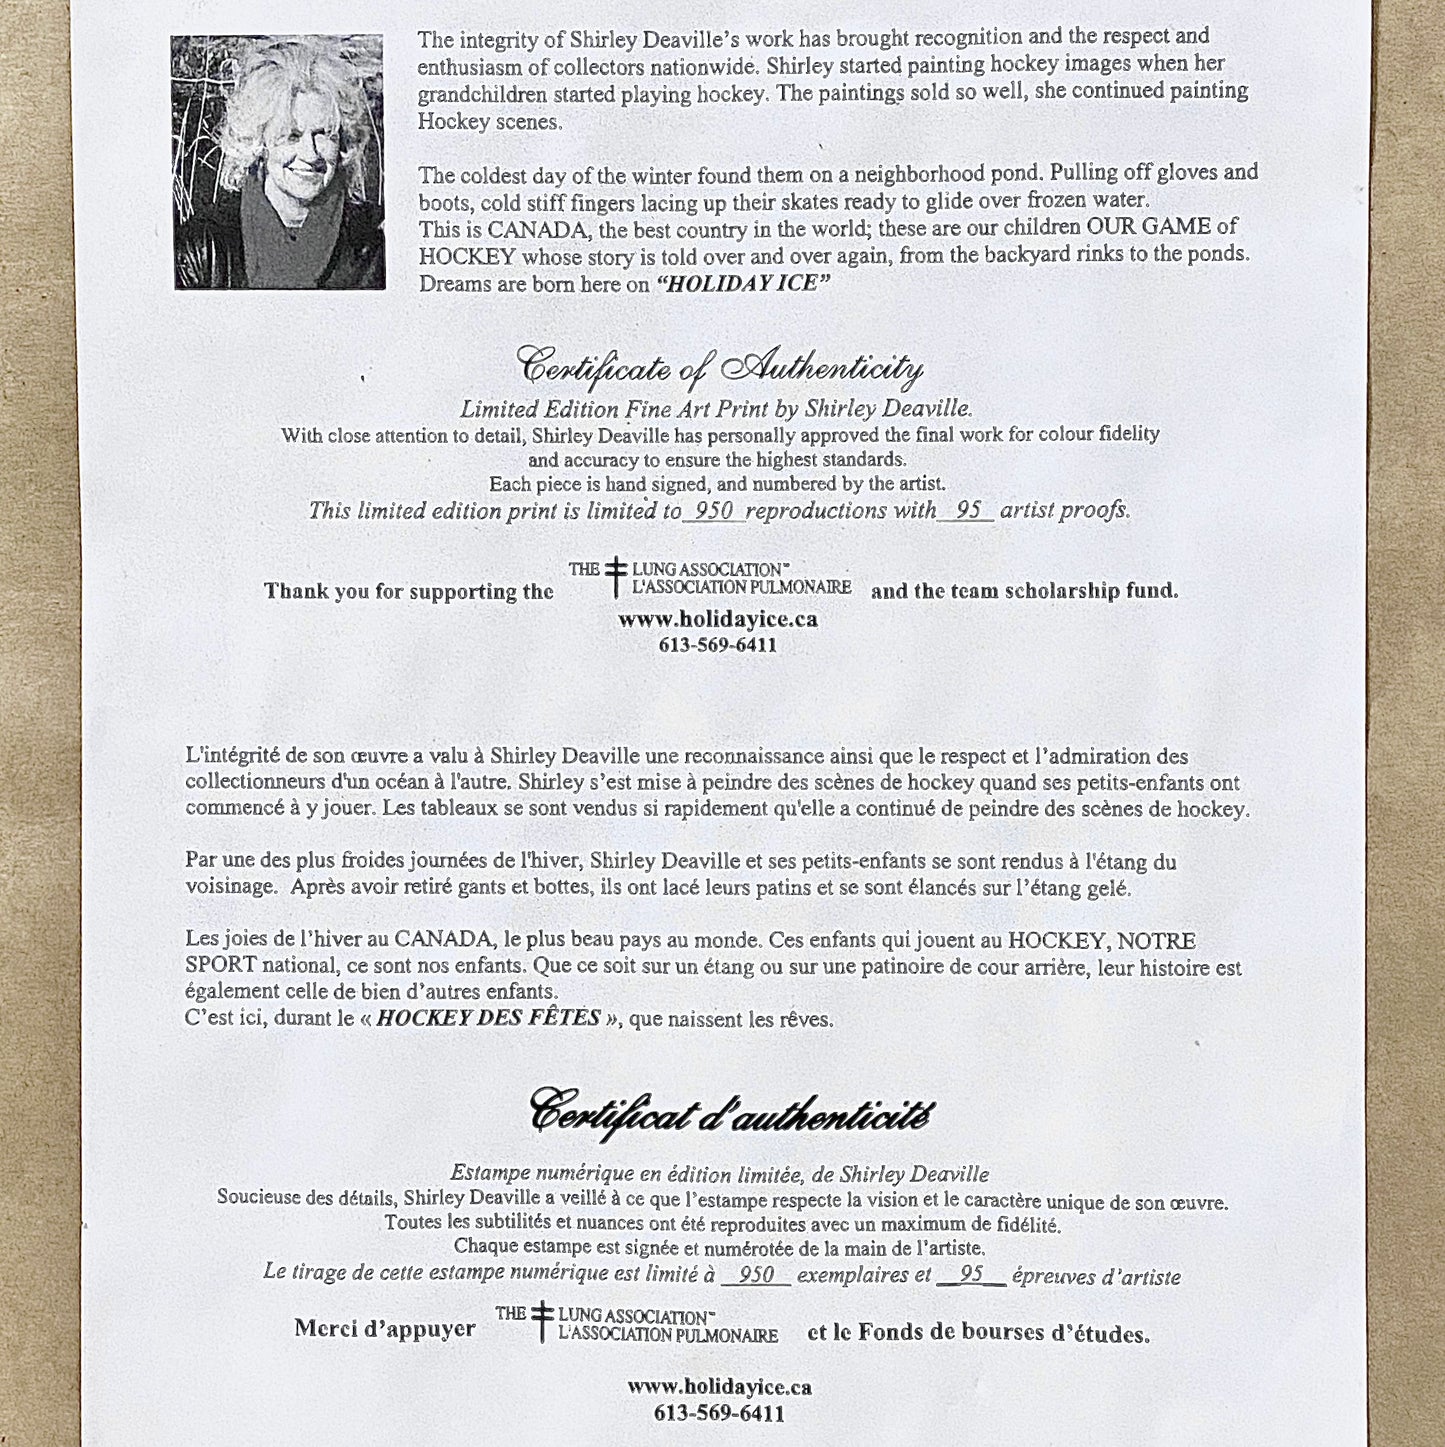 The integrity of Shirley Deaville's work has brought recognition and the respect and
enthusiasm of collectors nationwide. Shirley started painting hockey images when her
grandchildren started playing hockey. The paintings sold so well, she continued painting
Hockey scenes.
The coldest day of the winter found them on a neighborhood pond. Pulling off gloves and
boots, cold stiff fingers lacing up their skates ready to glide over frozen water.
This is CANADA, the best country in the world; these are our children OUR GAME of
HOCKEY whose story is told over and over again, from the backyard rinks to the ponds.
Dreams are born here on “HOLIDAY ICE”
Certificate of Authenticity
Limited Edition Fine Art Print by Shirley Deaville.
With close attention to detail, Shirley Deaville has personally approved the final work for colour fidelity
and accuracy to ensure the highest standards.
Each piece is hand signed, and numbered by the artist.
This limited edition print is limited to 950 reproductions with 95 artist proofs.
Thank you for supporting the THE LUNG ASSOCIATION™ L'ASSOCIATION PULMONAIRE and the team scholarship fund.
www.holidayice.ca
613-569-6411
L'intégrité de son œuvre a valu à Shirley Deaville une reconnaissance ainsi que le respect et l’admiration des
collectionneurs d'un océan à l'autre. Shirley s’est mise à peindre des scènes de hockey quand ses petits-enfants ont
commencé à y jouer. Les tableaux se sont vendus si rapidement qu'elle a continué de peindre des scènes de hockey.
Par une des plus froides journées de l'hiver, Shirley Deaville et ses petits-enfants se sont rendus à l'étang du
voisinage. Après avoir retiré gants et bottes, ils ont lacé leurs patins et se sont élancés sur l’étang gelé.
Les joies de l’hiver au CANADA, le plus beau pays au monde. Ces enfants qui jouent au HOCKEY, NOTRE
SPORT national, ce sont nos enfants. Que ce soit sur un étang ou sur une patinoire de cour arrière, leur histoire est
également celle de bien d’autres enfants.
C’est ici, durant le « HOCKEY DES FÊTES », que naissent les rêves.
Certificat d'authenticité
Estampe numérique en édition limitée, de Shirley Deaville
Soucieuse des détails, Shirley Deaville a veillé à ce que l’estampe respecte la vision et le caractère unique de son œuvre.
Toutes les subtilités et nuances ont été reproduites avec un maximum de fidélité.
Chaque estampe est signée et numérotée de la main de l’artiste.
Le tirage de cette estampe numérique est limité à 950 exemplaires et 95 épreuves d’artiste
Merci d’appuyer THE LUNG ASSOCIATION™ L'ASSOCIATION PULMONAIRE et le Fonds de bourses d’études.
www.holidayice.ca
613-569-6411